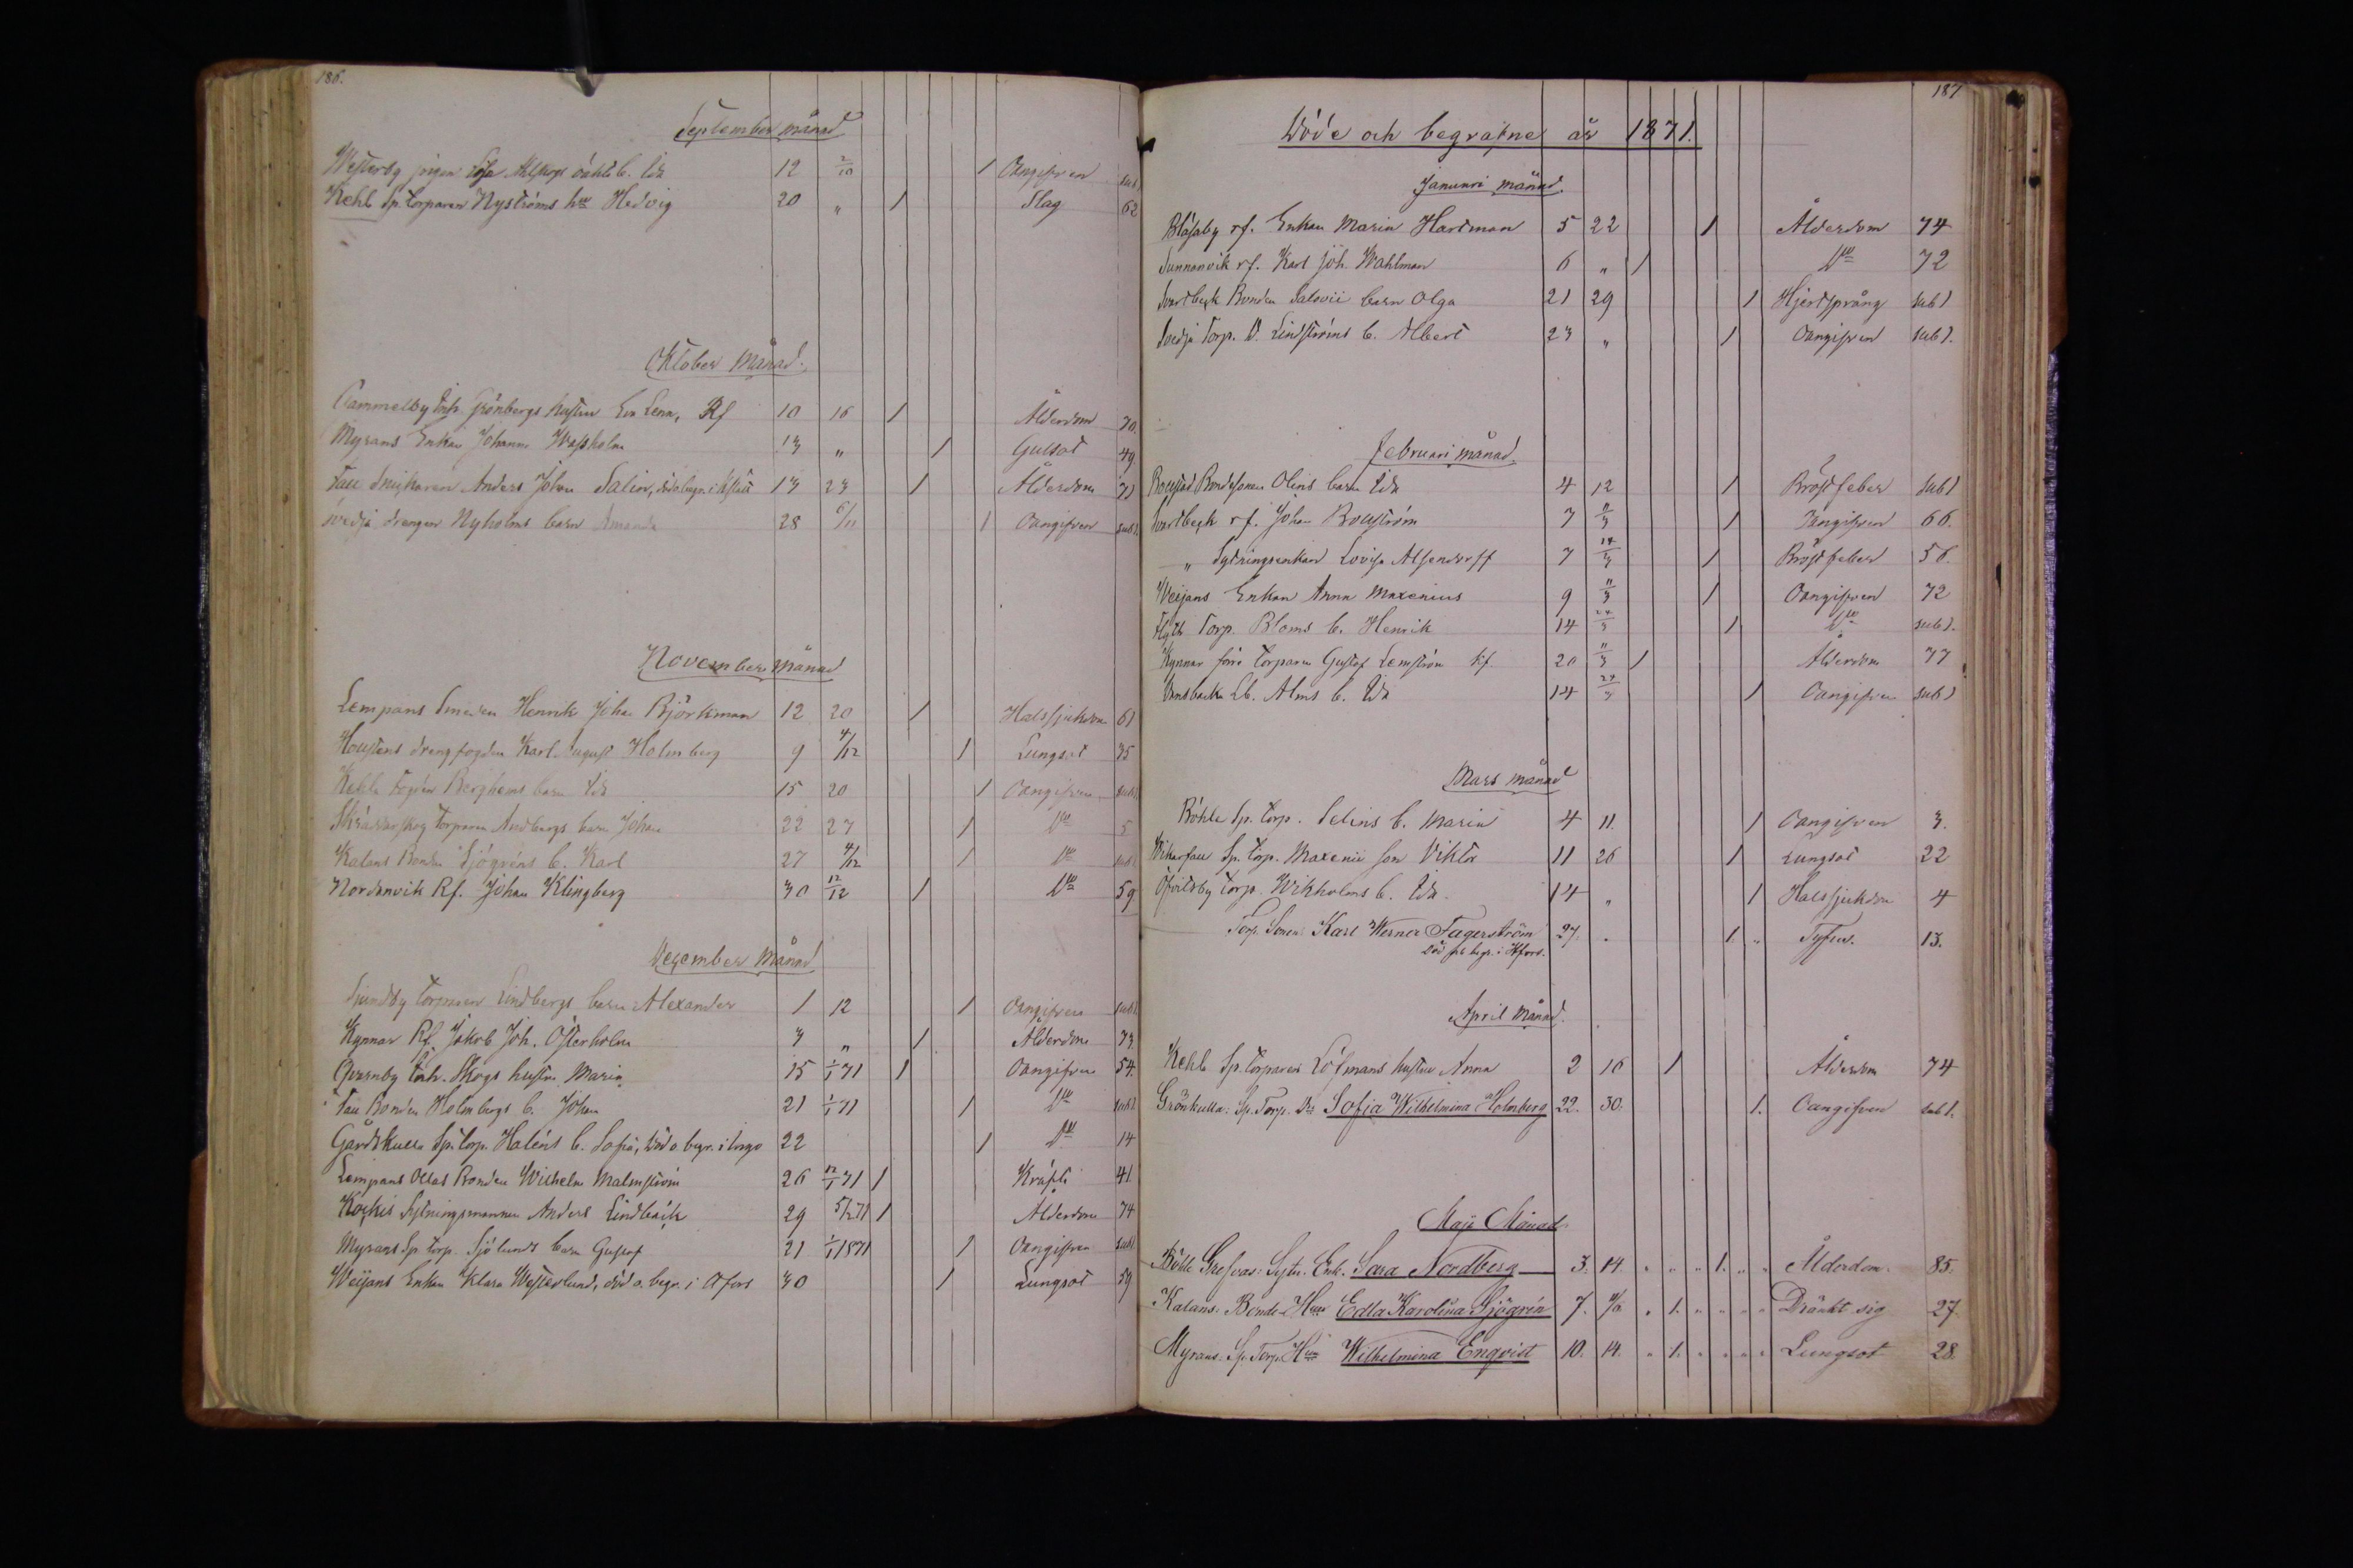 186.
September månad
Westerby pigan Sofia Ahlskogs oäkta b. Ida 12 2/10 1 Oangifven sub 1
Kehl Sp. torparen Nyströms hru Hedvig 20 " 1 Slag 62
Oktober Månad.
Gammelby Inh. Grönbergs hustru Eva Lena, Rf 10 16 1 Ålderdom 70.
Myrans Enkan Johanna Wassholm 13 " 1 Gulsot 49
Fall Snickaren Anders Johan Salin, 13 23 1 Ålderdom 71
Svedja drengen Nyholms barn Amanda 28 6/11 1 Oangifven sub 1.
November månad
Lempans Smeden Henrik Johan Björkman 12 20 1 Halssjukdom 61
drengfogden Karl August Holmberg 9 4/12 1 Lungsot 35
Kehla Fogden Berghems barn Ida 15 20 1 Oangifven sub 1
torparen Andbergs barn Johan 22 27 1 Do 5
Kalans Bonden Sjögréns b. Karl 27 4/12 1 Do sub 1
Nordanvik Rf. Johan Klingberg 30 12/12 1 Do 59
December Månad
Sjundby torparen Lindbergs barn Alexander 1 12 1 Oangifven sub 1
Kynnar Rf. Jakob Joh. Österholm 3 " 1 Ålderdom 73.
Qvarnby Inh. Skogs hustru Maria 15 1/1 71 1 Oangifven 54.
Fall Bonden Holmbergs b. Johan 21 1/1 71 1 Do sub 1
Gårdskulla Sp. torp. Haléns b. Sofia, död o. begr. i Ingo 22 1 Do 14
Lempans Ollas Bonden Wilhelm Malmström 26 12/1 71 1 Kräfta 41.
Kockis Sytningsmannen Anders Lindbäck 29 5/2 71 1 Ålderdom 74
Myrans Sp. torp. Sjölunds barn Gustaf 21 1/1 1871 1 Oangifven sub 1
Weijans Enkan Klara Westerlund, död o. begr. i Hfors 30 1 Lungsot 59
187
Döde och begrafne år 1871.
Januari månad.
Blåsaby rf. Enkan Maria Hartman 5 22 1 Ålderdom 74
Sunnanvik rf. Karl Joh. Wahlman 6 " 1 Do 72
Svartbeck Bonden Salovii barn Olga 21 29 1 Hjertsprång sub 1
Svedja Torp. D. Lindströms b. Albert 23 " 1 Oangifven sub 1.
Februari månad.
Bondesonen Olins barn Ida 4 12 1 Bröstfeber sub 1
Svartbeck rf. Johan Boström 7 11/3 1 Oangifven 66.
" Sytningsenkan Lovisa Alfendorff 7 14/3 1 Bröstfeber 56.
Weijans Enkan Anna Maxenius 9 11/3 1 Oangifven 72
Flyth Torp. Bloms b. Henrik 14 24/3 1 Do sub 1.
Kynnar förre torparen Gustaf Lemström Rf. 20 11/3 1 Ålderdom 77
Lb. Alms b. Ida 14 1 Oangifven sub 1
Mars månad
Böhle Sp. torp. Selins b. Maria 4 11. 1 Oangifven 3.
Sp. torp. Maxenii son Viktor 11 26 1 Lungsot 22
Öfvitsby torp. Wikholms b. Ida. 14 " 1 Halssjukdom 4
Torp. Sonen: Karl Werner Fagerström 27. " 1. " Tyfus. 13.
död och begr. i Hfors.
April månad.
Kehla Sp. torparen Löfmans hustru Anna 2 16 1 Ålderdom 74
Grönkulla: Sp. Torp. Dr. Sofia Wilhelmina Holmberg 22. 30. 1. Oangifven sub 1.
Maji Månad
Böhle Grefvas: Sytn. Enk. Sara Nordberg 3. 14. " " " 1. " " Ålderdom. 85.
Kalans: Bonde Hru Edla Karolina Sjögrén 7. " 1. " " " " Dränkt sig 27.
Myrans: Sp. Torp. Hru Wilhelmina Enqvist 10. 14. " 1. " " " " Lungsot 28.